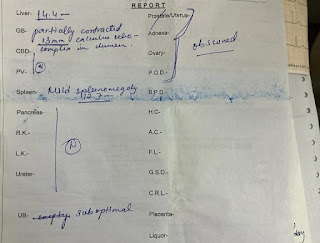 REPORT
Liver- 14.4 cm
GB- partially contracted
13mm calculus echo-
complex in lumen.
CBD-
PV- N
Spleen- Mild splenomegaly
12.7 cm
Pancreas-
R.K.-
L.K.- N
Ureter-
UB- empty suboptimal
Prostate/Uterus-
Adnexa-
Ovary- obscured
P.O.D.-
B.P.D.-
H.C.-
A.C.-
F.L.-
G.S.D.-
C.R.L.-
Placenta-
Liquor-